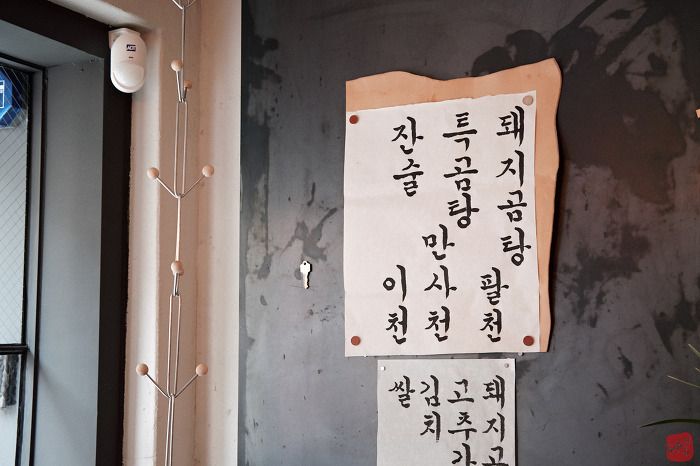 돼지곰탕 팔천
특곰탕 만사천
잔술 이천
돼지고
고추가
김치
쌀
ADT